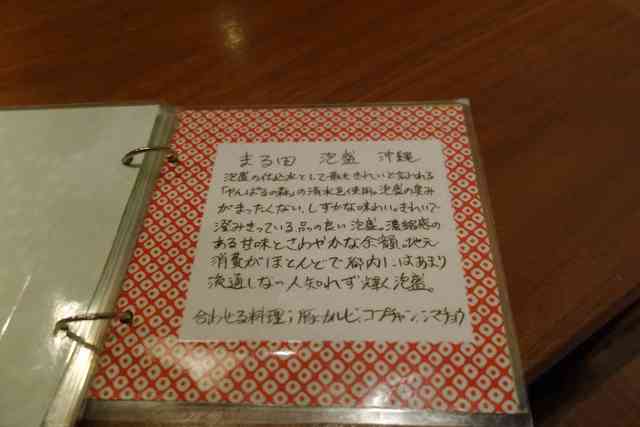 まる田 泡盛 沖縄
泡盛の仕込水として最もきれいと言われる
「やんばるの森」の清水を使用。泡盛の臭み
がまったくない、しずかな味わい。きれいで
澄みきっている品の良い泡盛。濃縮感の
ある甘味とさわやかな余韻。地元
消費がほとんどで都内にはあまり
流通しない人知れず輝く泡盛。
合わせる料理；豚カルビ、コプチャン、シマチョウ